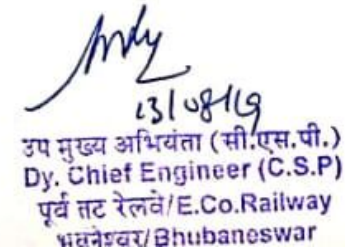 13/08/19
उप मुख्य अभियंता (सी.एस.पी.)
Dy. Chief Engineer (C.S.P)
पूर्व तट रेलवे/E.Co.Railway
भुवनेश्वर/Bhubaneswar